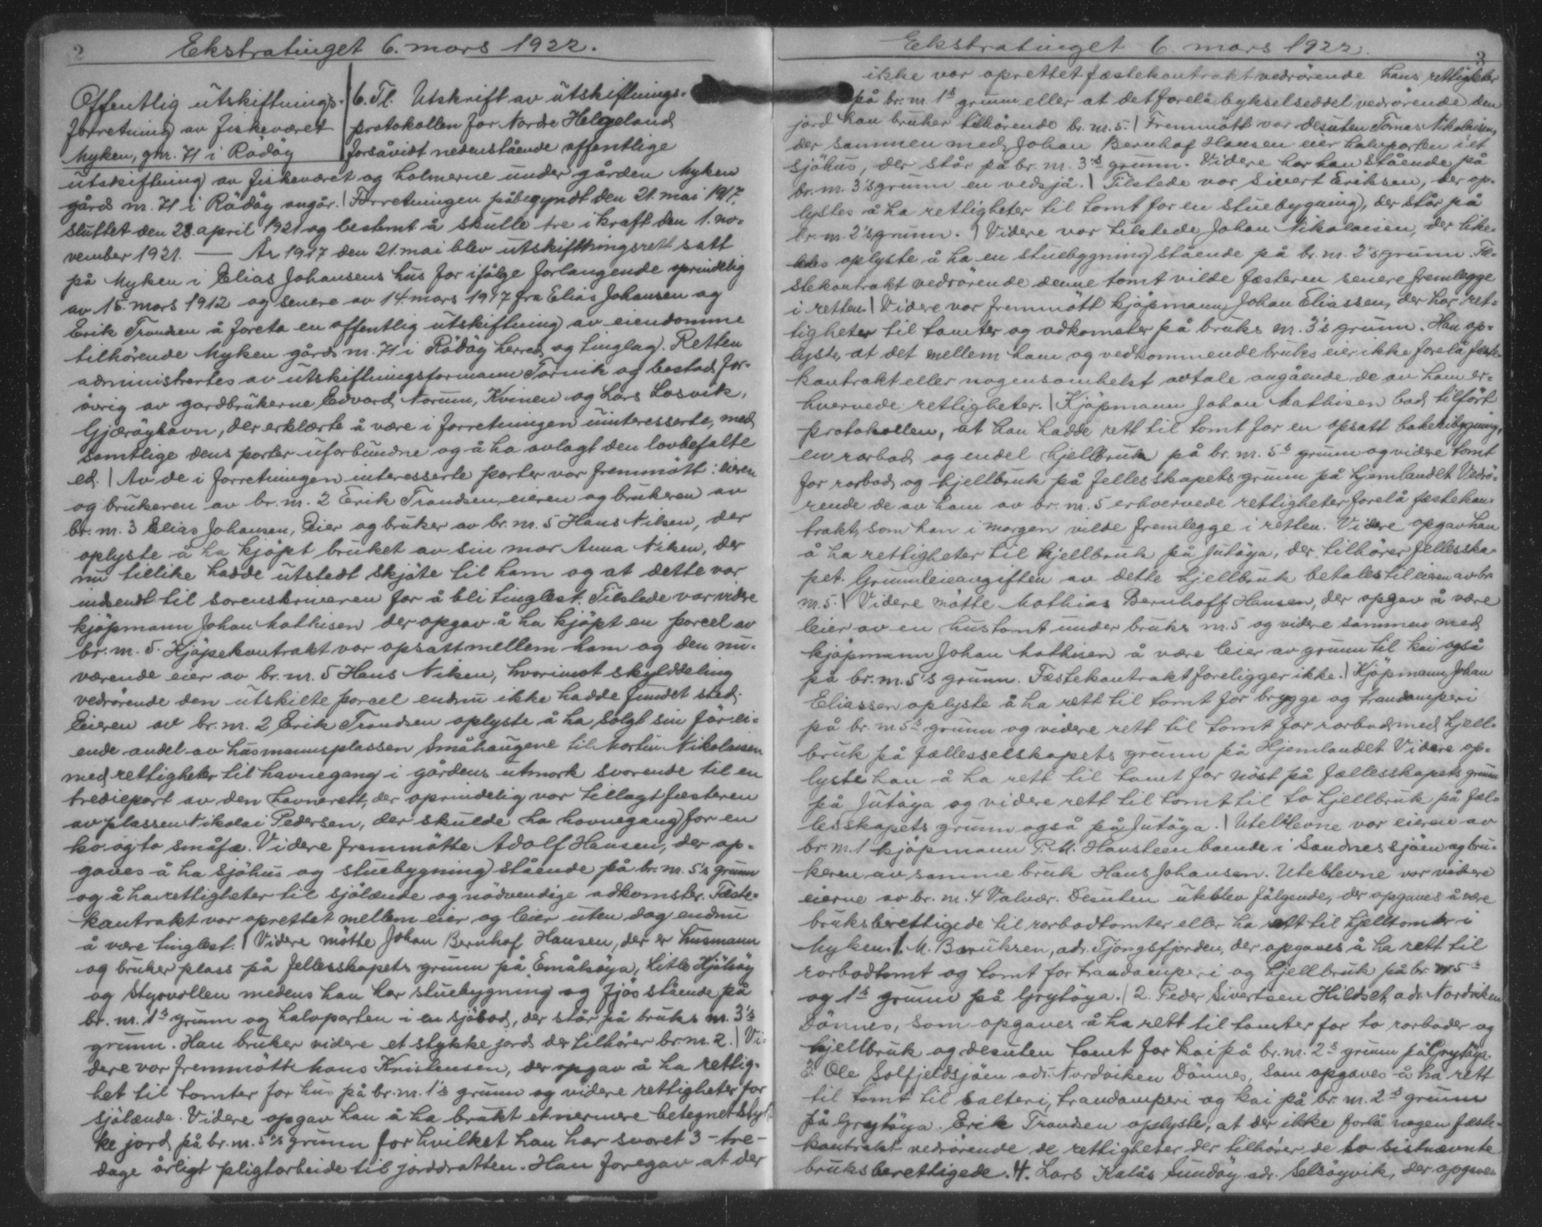 2
Ekstratinget 6. mars 1922.
Offentlig utskiftnings-
forretning av fiskeværet
Myken, gnr. 71 i Rødøy
6. Tl. Utskrift av utskiftnings-
protokollen for Nordre Helgeland
forsåvidt nedenstående offentlige
utskiftning av fiskeværet og holmerne under gården Myken
gårds nr. 71 i Rødøy angår. | Forretningen påbegyndt den 21. mai 1917,
sluttet den 23 april 1921 og bestemt å skulle tre i kraft den 1. no-
vember 1921. — År 1917 den 21. mai blev utskiftningsrett satt
på Myken i Elias Johansens hus for ifølge forlangende oprindelig
av 15 mars 1912 og senere av 14 mars 1917 fra Elias Johansen og
Erik Trondsen å foreta en offentlig utskiftning av eiendomme
tilhørende Myken gårds nr. 71 i Rødøy herred og tinglag. Retten
administrertes av utskiftningsformann Tarnik og bestod for-
øvrig av gardbrukerne Edvard Norum, Kvinen og Lars Losvik,
Gjærøyhavn, der erklærte å være i forretningen uinteresserte, med
samtlige dens parter uforbundne og å ha avlagt den lovbefalte
ed. | Av de i forretningen interesserte parter var fremmøtt: eieren
og brukeren av br. nr. 2 Erik Trondsen, eieren og brukeren av
br. nr. 3 Elias Johansen, Eier og bruker av br. nr. 5 Hans Nilsen, der
oplyste å ha kjøpt bruket av sin mor Anna Nilsen, der
nu tillike hadde utstedt skjøte til ham og at dette var
indsendt til sorenskriveren for å bli tinglest. Tilstede var videre
kjøpmann Johan Mathisen der opgav å ha kjøpt en parcel av
br. nr. 5. Kjøpekontrakt var opsatt mellem ham og den nu-
værende eier av br. nr. 5 Hans Nilsen, hvorimot skylddeling
vedrørende den utskilte parcel endnu ikke hadde fundet sted.
Eieren av br. nr. 2 Erik Trondsen oplyste å ha solgt sin før ei-
ende andel av husmannsplassen Småhaugene til Martin Nikolaisen
med rettigheter til havnegang i gårdens utmark svarende til en
trediepart av den havnerett, der oprindelig var tillagt fæsteren
av plassen Nikolai Pedersen, der skulde ha havnegang for en
ko og to småfæ. Videre fremmøtte Adolf Hansen, der op-
gaves å ha sjøhus og stuebygning stående på br. nr. 5's grunn
og å ha rettigheter til sjølænde og nødvendige adkomster. Fæste-
kontrakt var oprettet mellem eier og leier uten dog endnu
å være tinglest. | Videre møtte Johan Bernhof Hansen, der er husmann
og bruker plass på fellesskapets grunn på Småløya, Litle Hjåløy
og Styrvollen medens han har stuebygning og fjøs stående på
br. nr. 1's grunn og halvparten i en sjøbod, der står på bruks nr. 3's
grunn. Han bruker videre et stykke jord der tilhører br nr. 2. | Vi-
dere var fremmøtt Hans Kristensen, der opgav å ha rettig-
het til tomter for hus på br. nr. 1's grunn og videre rettigheter for
sjølænde. Videre opgav han å ha brukt et nærmere betegnet styk-
ke jord på br. nr. 5's grunn for hvilket han har svaret 3 - tre -
dage årligt pligtarbeide til jorddrotten. Han foregav at der
3
Ekstratinget 6. mars 1922.
ikke var oprettet fæstekontrakt vedrørende hans rettigheter
på br. nr. 1's grunn eller at det forelå bykselseddel vedrørende den
jord han bruker tilhørende br. nr. 5. | Fremmøtt var desuten Tomas Nikolaisen,
der sammen med Johan Bernhof Hansen eier halvparten i et
sjøhus, der står på br. nr. 3's grunn. Videre har han stående på
br. nr. 3's grunn en vedsjå. | Tilstede var Sivert Eriksen, der op-
lystes å ha rettigheter til tomt for en stuebygning, der står på
br. nr. 2's grunn. | Videre var tilstede Johan Nikolaisen, der like-
ledes oplyste å ha en stuebygning stående på br. nr. 2's grunn. Fæ-
stekontrakt vedrørende denne tomt vilde fæsteren senere fremlegge
i retten. | Videre var fremmøtt kjøpmann Johan Eliassen, der har ret-
tigheter til tomter og adkomster på bruks nr. 3's grunn. Han op-
lyste at det mellem ham og vedkommende bruks eier ikke forelå fæste-
kontrakt eller nogensomhelst avtale angående de av ham er-
hvervede rettigheter. | Kjøpmann Johan Mathisen bad tilført
protokollen, at han hadde rett til tomt for en opsatt bakeribygning,
en rorbod og endel hjellbruk på br. nr. 5's grunn og videre tomt
for rorbod og hjellbruk på fellesskapets grunn på Hjemlandet. Vedrø-
rende de av ham av br. nr. 5 erhvervede rettigheter forelå fæstekon-
trakt, som han i morgen vilde fremlegge i retten. Videre opgav han
å ha rettigheter til hjellbruk på Jutøya, der tilhører fellesska-
pet. Grunnleieavgiften av dette hjellbruk betales til eieren av br.
nr. 5. | Videre møtte Mathias Bernhoff Hansen, der opgav å være
leier av en hustomt under bruks nr. 5 og videre sammen med
kjøpmann Johan Mathisen å være leier av grunn til kai også
på br. nr. 5's grunn. Fæstekontrakt foreligger ikke. | Kjøpmann Johan
Eliassen oplyste å ha rett til tomt for brygge og trandamperi
på br. nr 5's grunn og videre rett til tomt for rorbod med hjell-
bruk på fællesselskapets grunn på Hjemlandet. Videre op-
lyste han å ha rett til tomt for nøst på fællesskapets grunn
på Jutøya og videre rett til tomt til to hjellbruk på fæl-
lesskapets grunn også på Jutøya. | Uteblevne var eieren av
br nr. 1 kjøpmann Hansteen boende i Sandnessjøen og bru-
keren av samme bruk Hans Johansen. Uteblevne var videre
eierne av br. nr. 4 Valvær. Desuten uteblev følgende, der opgaves å være
bruksberettigede til rorbodtomter eller ha rett til hjelltomter i
Myken: 1. M. Benriksen, adr. Tjongsfjorden, der opgaves å ha rett til
rorbodtomt og tomt for trandamperi og hjellbruk på br. nr 5's
og 1's grunn på Grytøya. | 2. Peder Sivertsen Hildset, adr. Nordviken
Dønnes, som opgaves å ha rett til tomter for to rorboder og
hjellbruk og desuten tomt for kai på br. nr. 2's grunn på Grytøya.
3. Ole Solfjeldsjøen adr. Nordviken Dønnes, som opgaves å ha rett
til tomt til salteri, trandamperi og kai på br. nr. 2's grunn
på Grytøya. Erik Trondsen oplyste, at der ikke forlå nogen fæste-
kontrakt vedrørende de rettigheter der tilhører de to sistnævnte
bruksberettigede. 4. Lars Kalås Sundøy adr. Selsøyvik, der opgaves